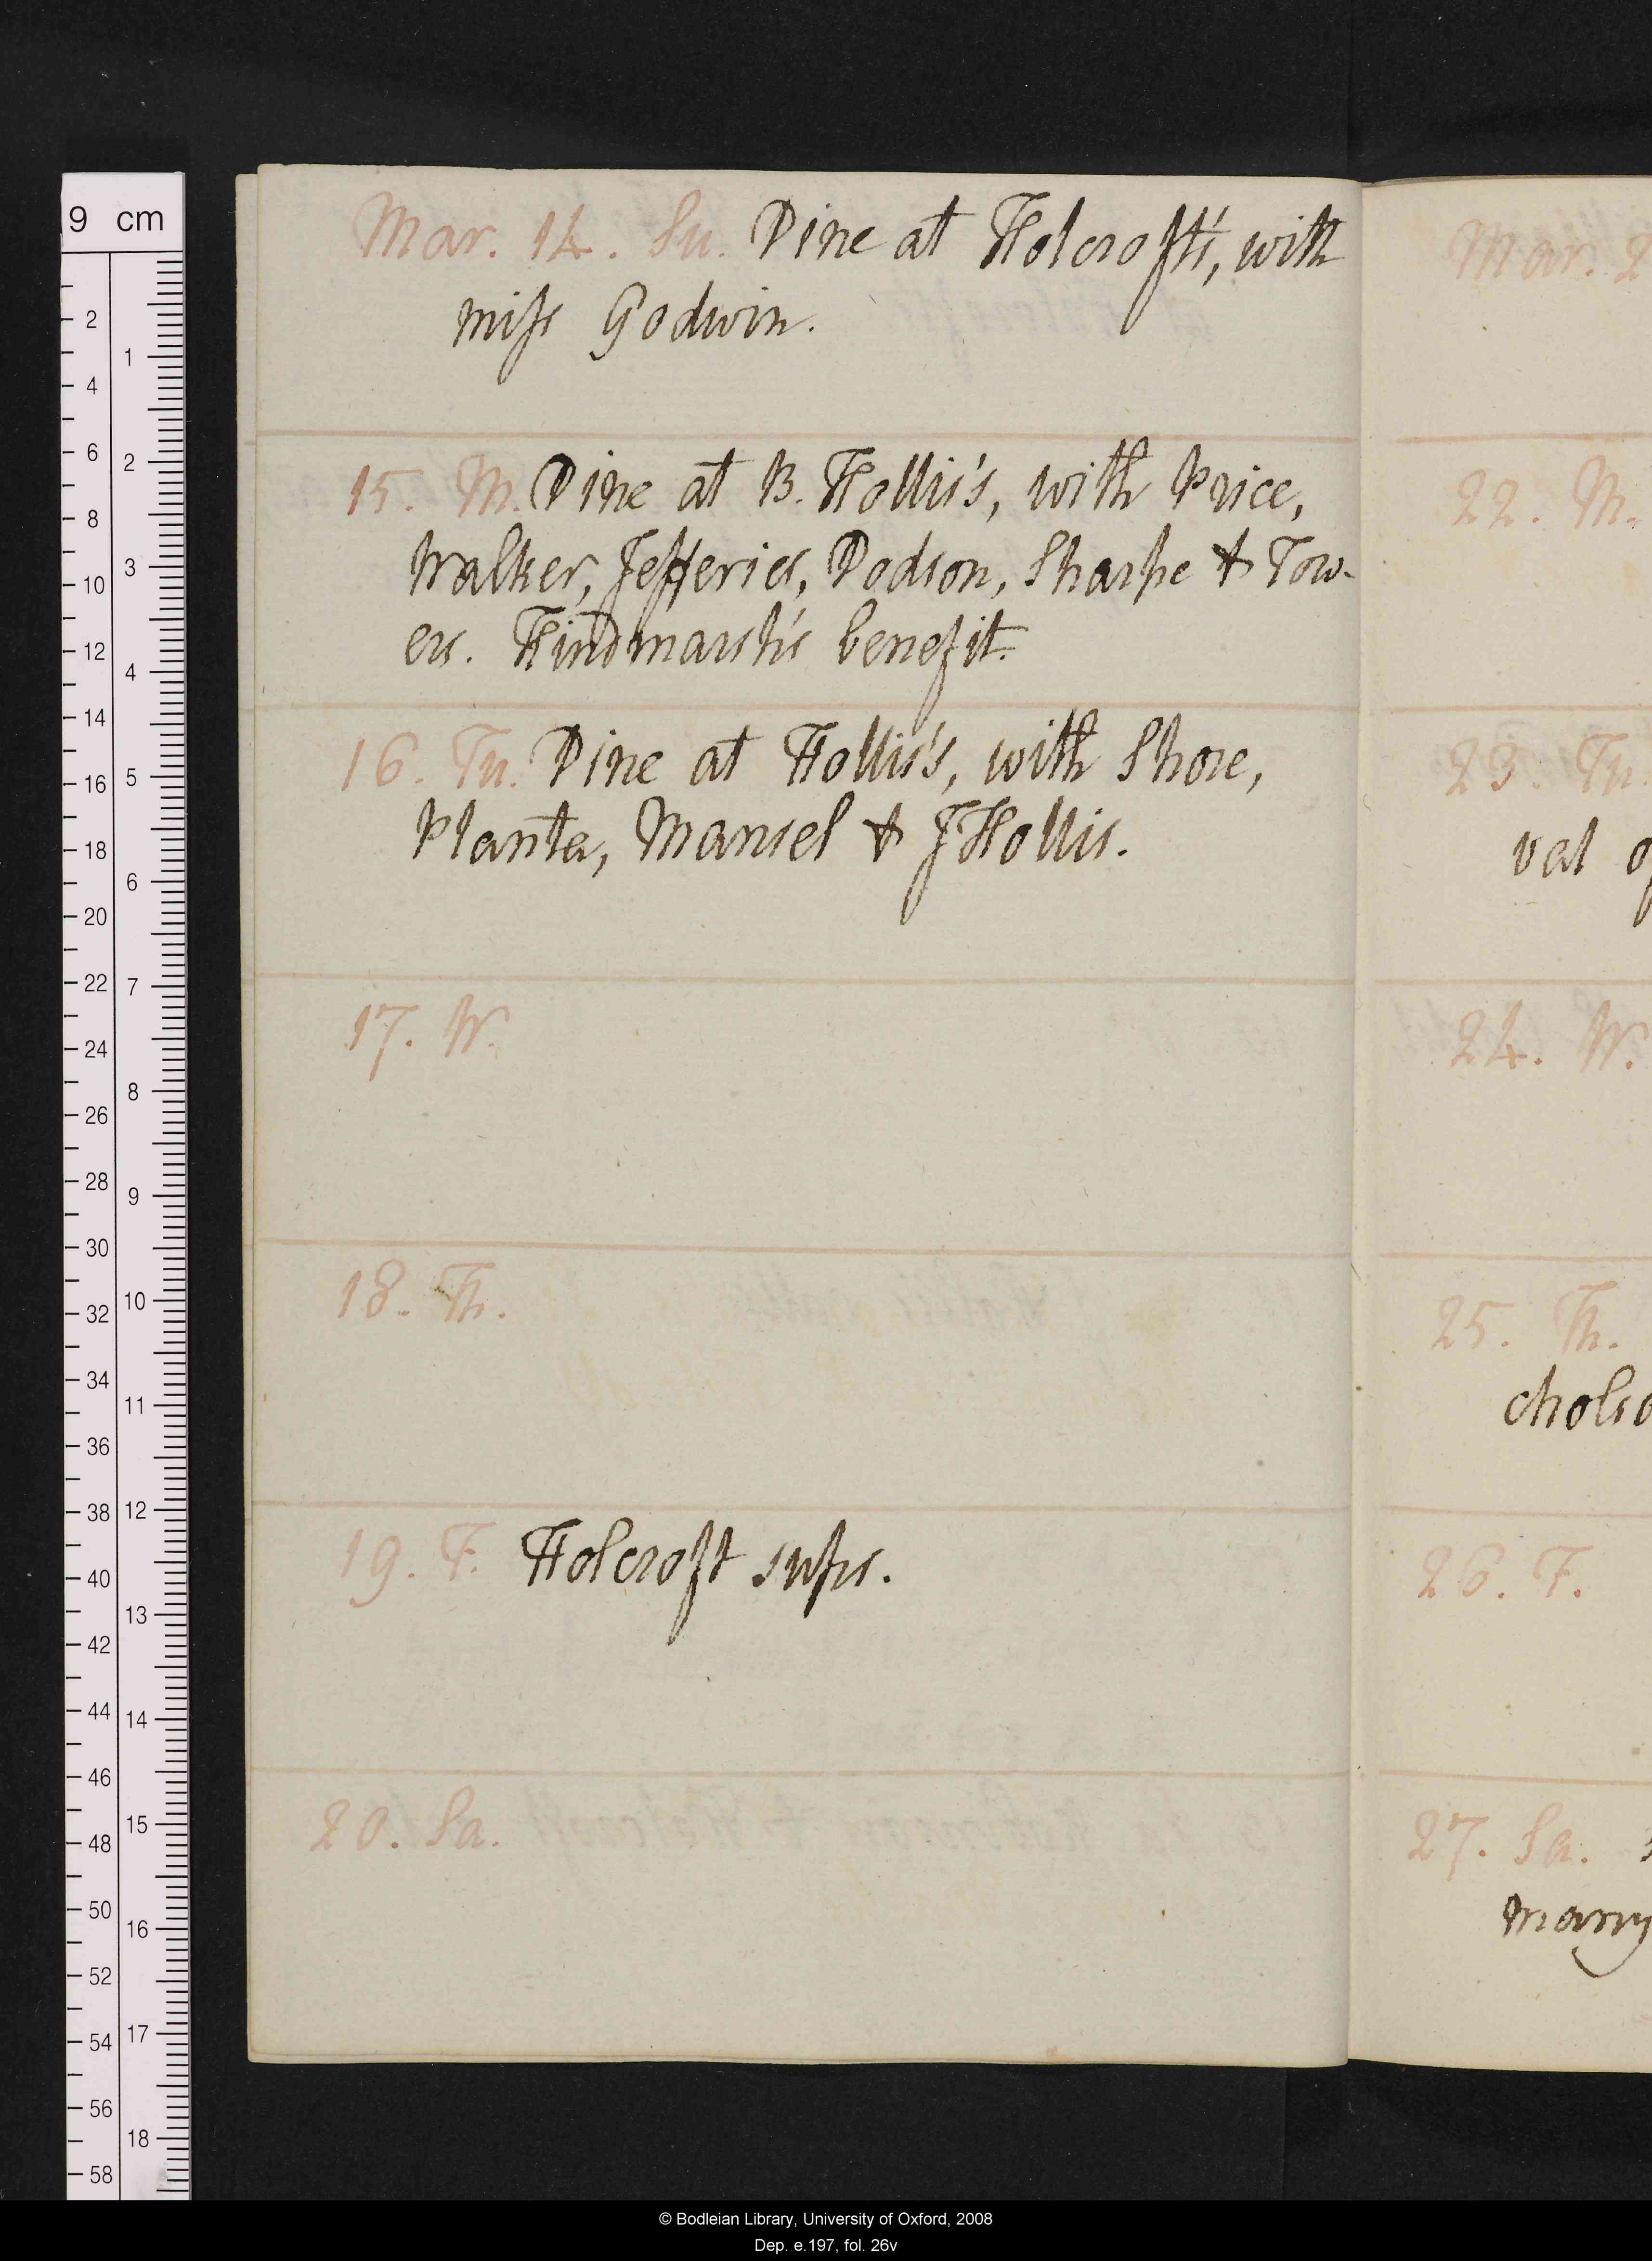 Mar. 14. Su. Dine at Holcroft's, with
miss Godwin.
15. M. Dine at B. Hollis's, with Price,
Walker, Jefferies, Dodson, Sharpe & Tow-
ers. Hindmarsh's benefit.
16. Tu. Dine at Hollis's, with Shore,
Planta, Mansel & J Hollis.
17. W.
18. Th.
19. F. Holcroft sups.
20. Sa.
Mar. 2
22. M.
23. Tu.
val
24. W.
25. Th.
cholso
26. F.
27. Sa.
many
9 cm
2
4
6
8
10
12
14
16
18
20
22
24
26
28
30
32
34
36
38
40
42
44
46
48
50
52
54
56
58
1
2
3
4
5
6
7
8
9
10
11
12
13
14
15
16
17
18
© Bodleian Library, University of Oxford, 2008
Dep. e.197, fol. 26v